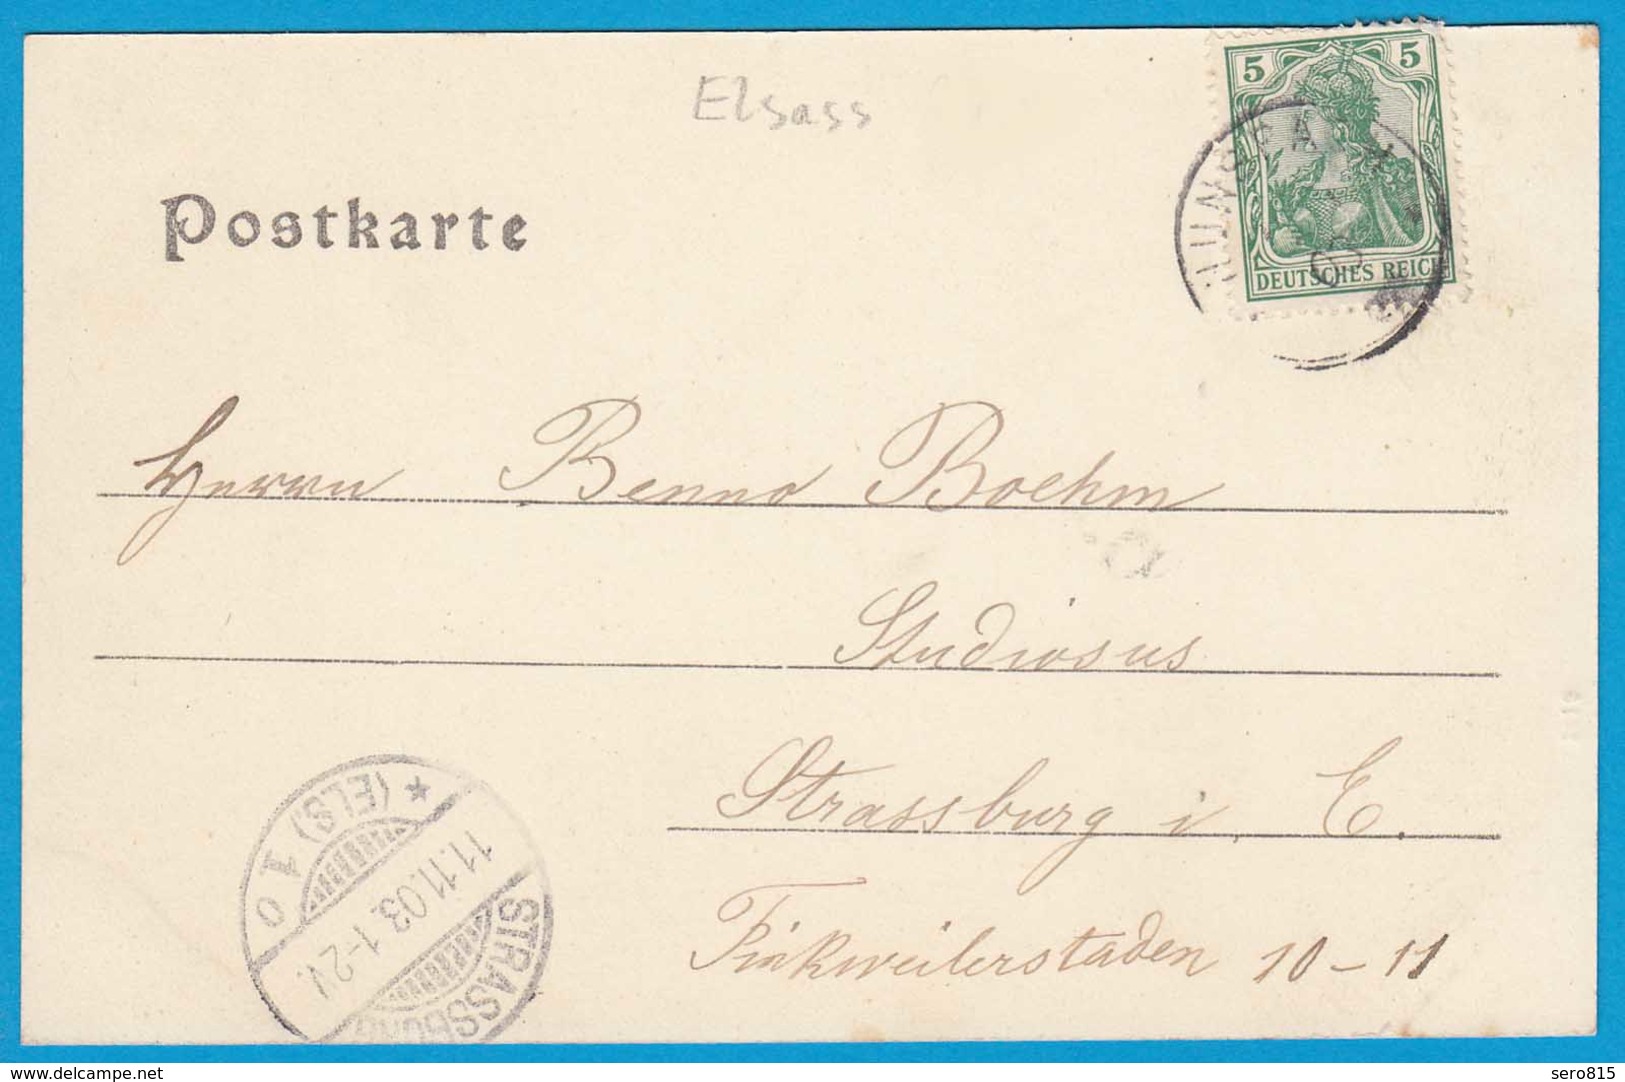 Elsass
5 5
DEUTSCHES REICH
03
Postkarte
Herrn Benno Boehm
Studiosus
Strassburg i. E.
Finkweilerstaden 10-11
STRASSBURG
(ELS) 1 o
11.11.03. 1-2N.
www.delcampe.net
sero815